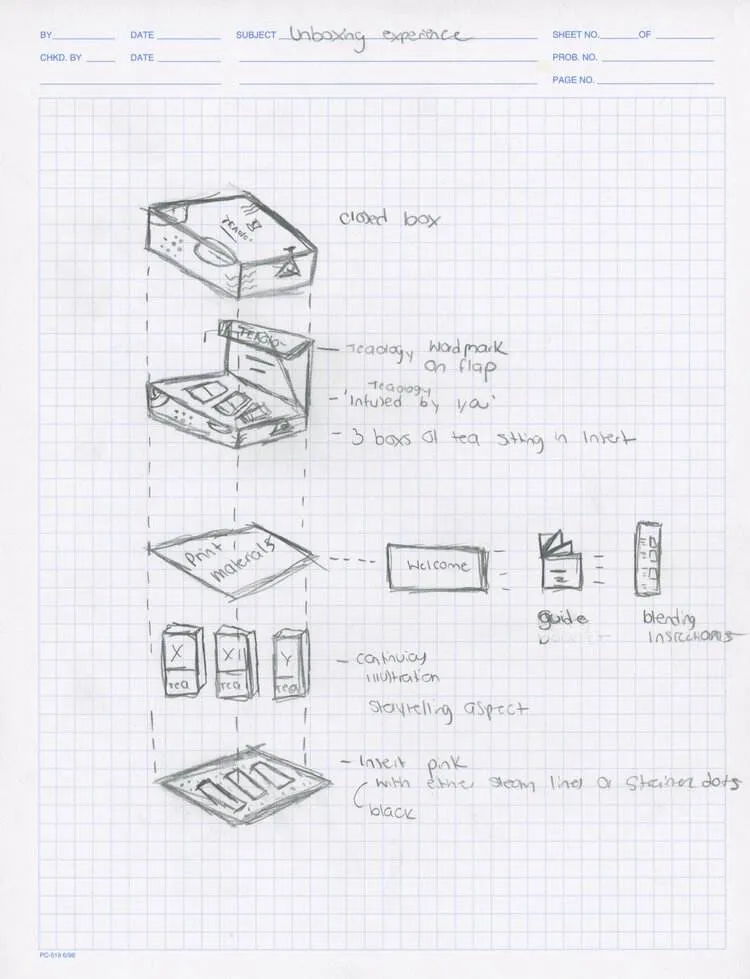 BY DATE SUBJECT Unboxing experience SHEET NO. OF
CHKD. BY DATE PROB. NO.
PAGE NO.
closed box
TEAolo-
TEAolo-
- Teaology wordmark
on flap
Teaology
- 'Infused by you'
- 3 boxs of tea sitting in insert
Print
materials
Welcome
guide
blending
X
tea
XII
tea
Y
tea
illustration
Storytelling aspect
- Insert pink
with either steam lines or strainer dots
black
PC-519 6/98